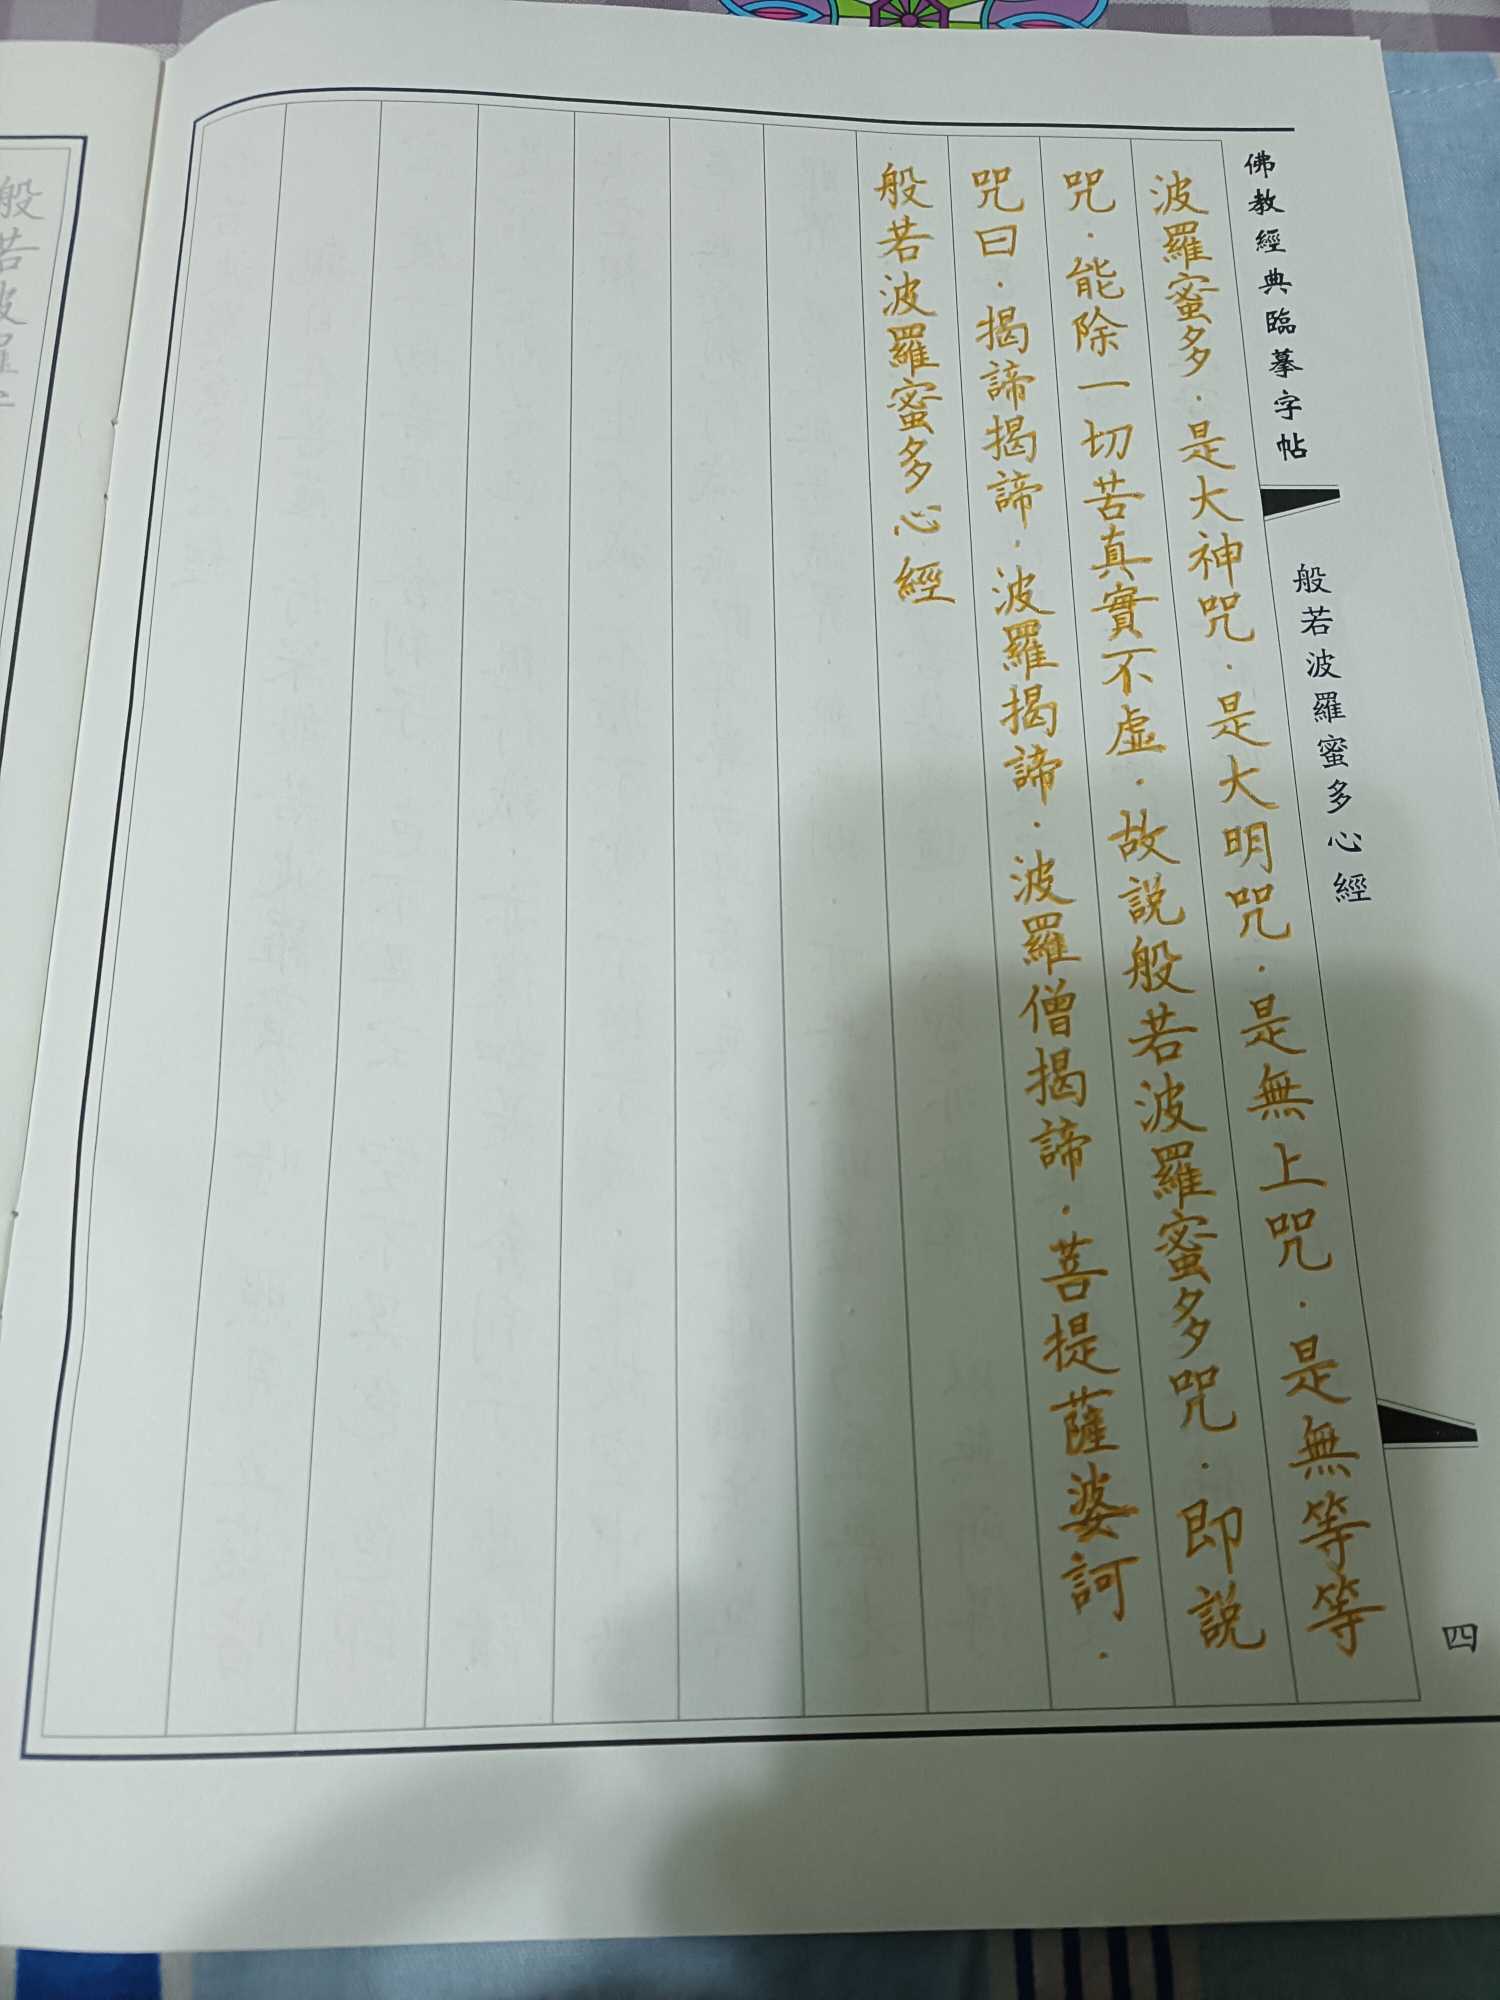 佛教經典臨摹字帖
般若波羅蜜多心經
四
波羅蜜多．是大神咒．是大明咒．是無上咒．是無等等
咒．能除一切苦真實不虛．故説般若波羅蜜多咒．即説
咒曰．揭諦揭諦．波羅揭諦．波羅僧揭諦．菩提薩婆訶．
般若波羅蜜多心經
般若波羅